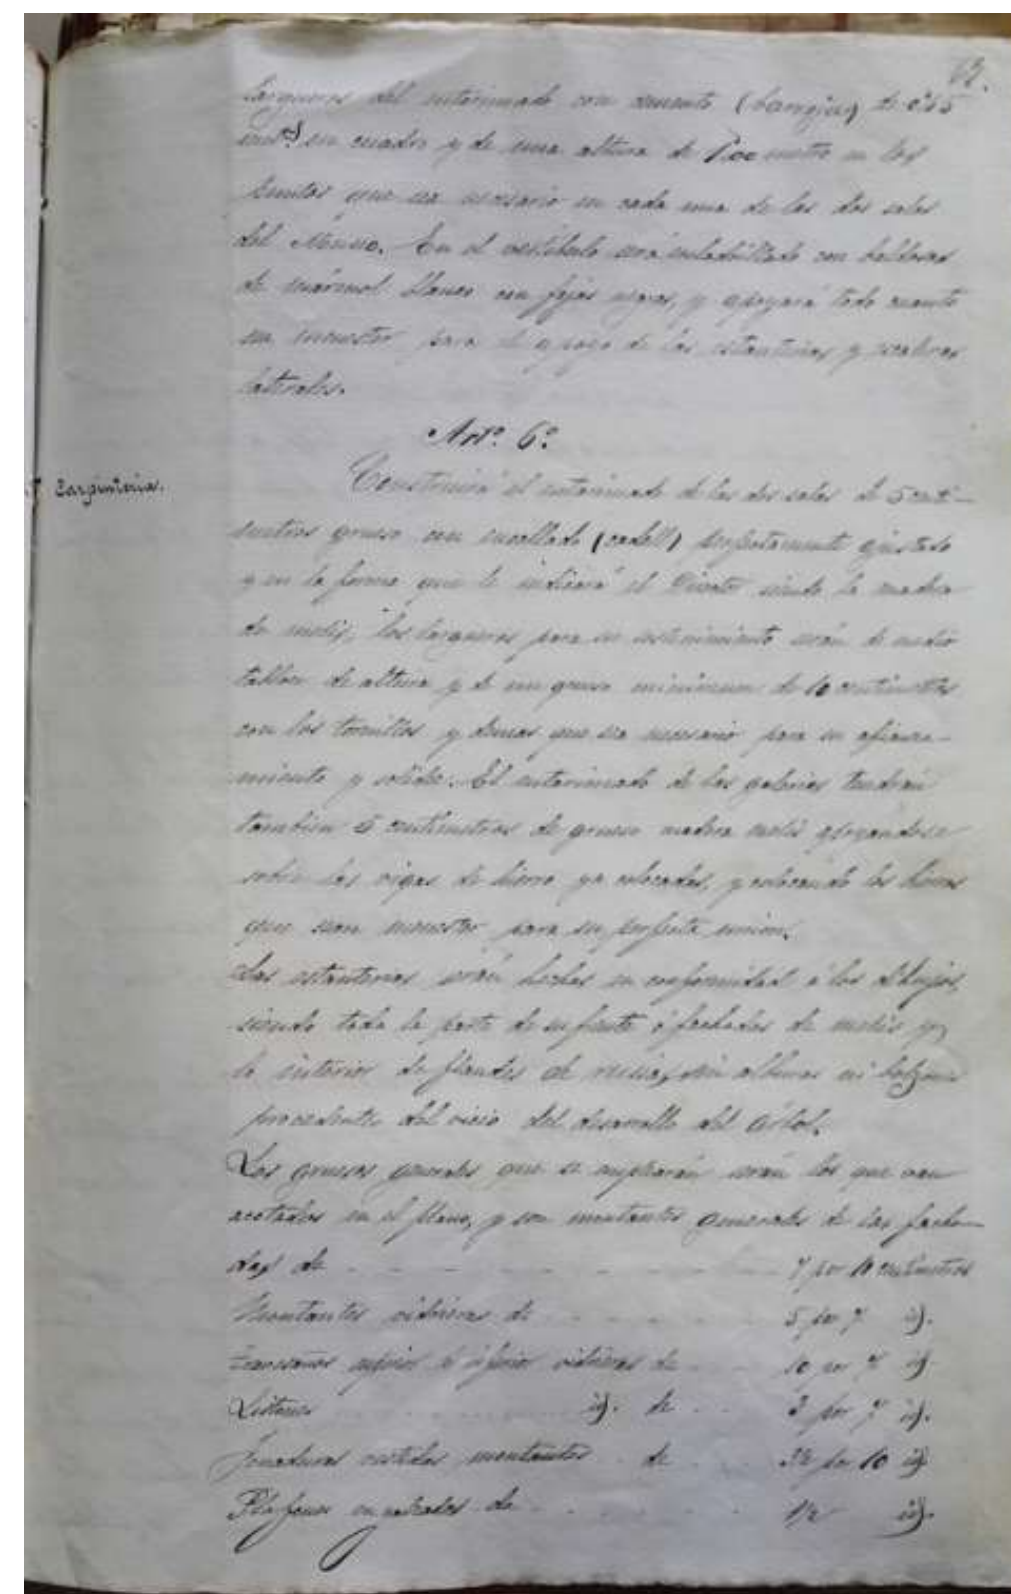 62.
largueros del entarimado con cemento (barrejau) de 0'15
en cuadro y de una altura de 1'00 metro en los
puntos que sea necesario en cada una de las dos salas
del Museo. En el vestíbulo será enladrillado con baldosas
de mármol blanco con fajas negras, y apoyará todo cuanto
sea menester para el apoyo de las estanterias y escaleras
laterales.
Arto. 6o.
Carpinteria.
Construirá el entarimado de las dos salas de 5 centi-
metros grueso con encollado (cadell) perfectamente ajustado
y en la forma que le indicará el Director siendo la madera
de melis, los largueros para su sostenimiento serán de medio
tablon de altura y de un grueso minimum de 10 centimetros
con los tornillos y demas que sea necesario para su afianza-
miento y solidez. El entarimado de las galerias tendrán
tambien 5 centimetros de grueso madera melis apoyandose
sobre las vigas de hierro ya colocadas, y colocando los hierros
que sean menester para su perfecta union.
Las estanterias serán hechas en conformidad á los dibujos,
siendo toda la parte de su frente ó fachadas de melis y
lo interior de flandes de rusia, sin albura ni
procedente del vicio del desarrollo del árbol.
Los gruesos generales que se emplearán serán los que van
acotados en el plano, y son montantes generales de las facha-
das de 7 por 10 centimetros
Montantes vidrieras de 5 por 7 id.
Travesaños superior é inferior vidrieras de 10 por 7 id
Listones id. de 3 por 7 id.
montantes de 3½ por 10 id
Plafones encuadrados de 1/2 id.